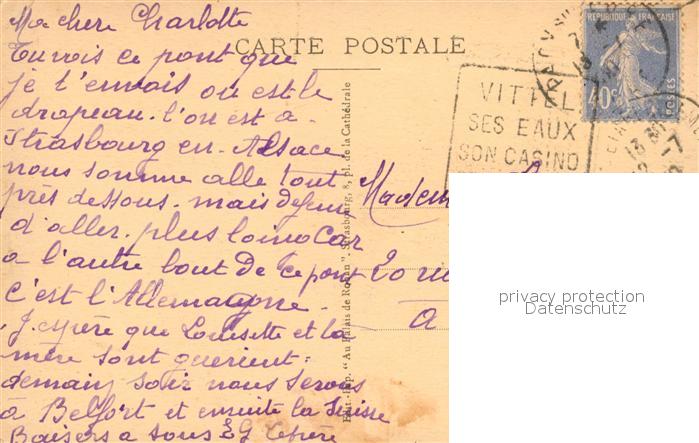 Ma chere Charlotte
CARTE POSTALE
Tu vois ce pont que
je t'envois ou est le
drapeau. l'on est a
Strasbourg en Alsace
nous somme allé tout
près dessous. mais defense
d'aller. plus loin Car
a l'autre bout de ce pont
c'est l'Allemagne.
J'espère que Louisette et la
mère sont guerient.
demain soir nous serons
à Belfort et ensuite la Suisse
Baisers a tous
RÉPUBLIQUE FRANÇAISE
40c
POSTES
VITTEL
SES EAUX
SON CASINO
Édit.-Imp. "Au Palais de Rohan". Strasbourg, 8, pl. de la Cathédrale
à
privacy protection
Datenschutz